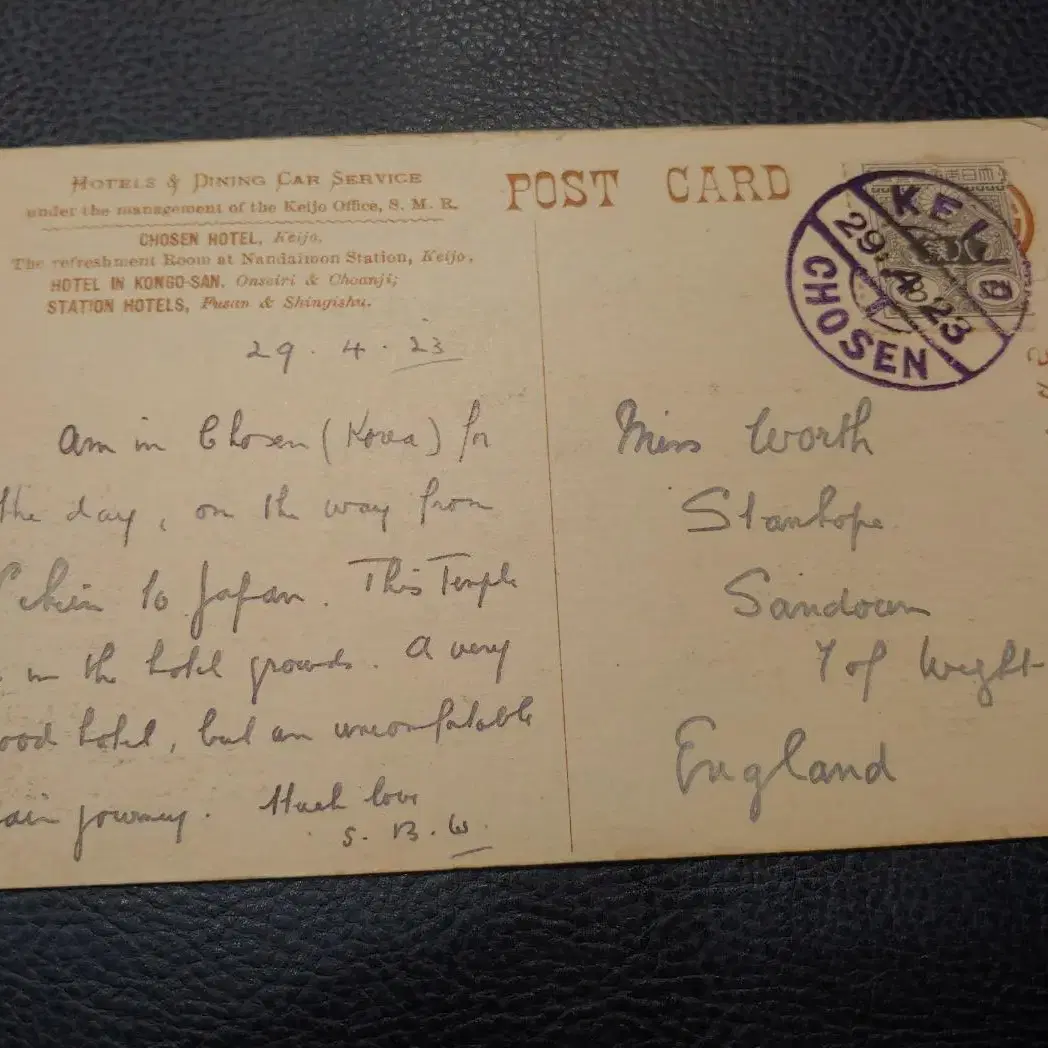 HOTELS & DINING CAR SERVICE
under the management of the Keijo Office, S. M. R.
CHOSEN HOTEL, Keijo,
The refreshment Room at Nandaimon Station, Keijo,
HOTEL IN KONGO-SAN, Onseiri & Choanji;
STATION HOTELS, Fusan & Shingishu.
29. 4. 23
Am in Chosen (Korea) for
the day, on the way from
Pekin to Japan. This Temple
in the hotel grounds. A very
ood hotel, but an uncomfortable
ain journey. Much love
S. B. W.
POST CARD
KEI
29. 4. 23
CHOSEN
Miss Worth
Stanhope
Sandown
I of Wight
England